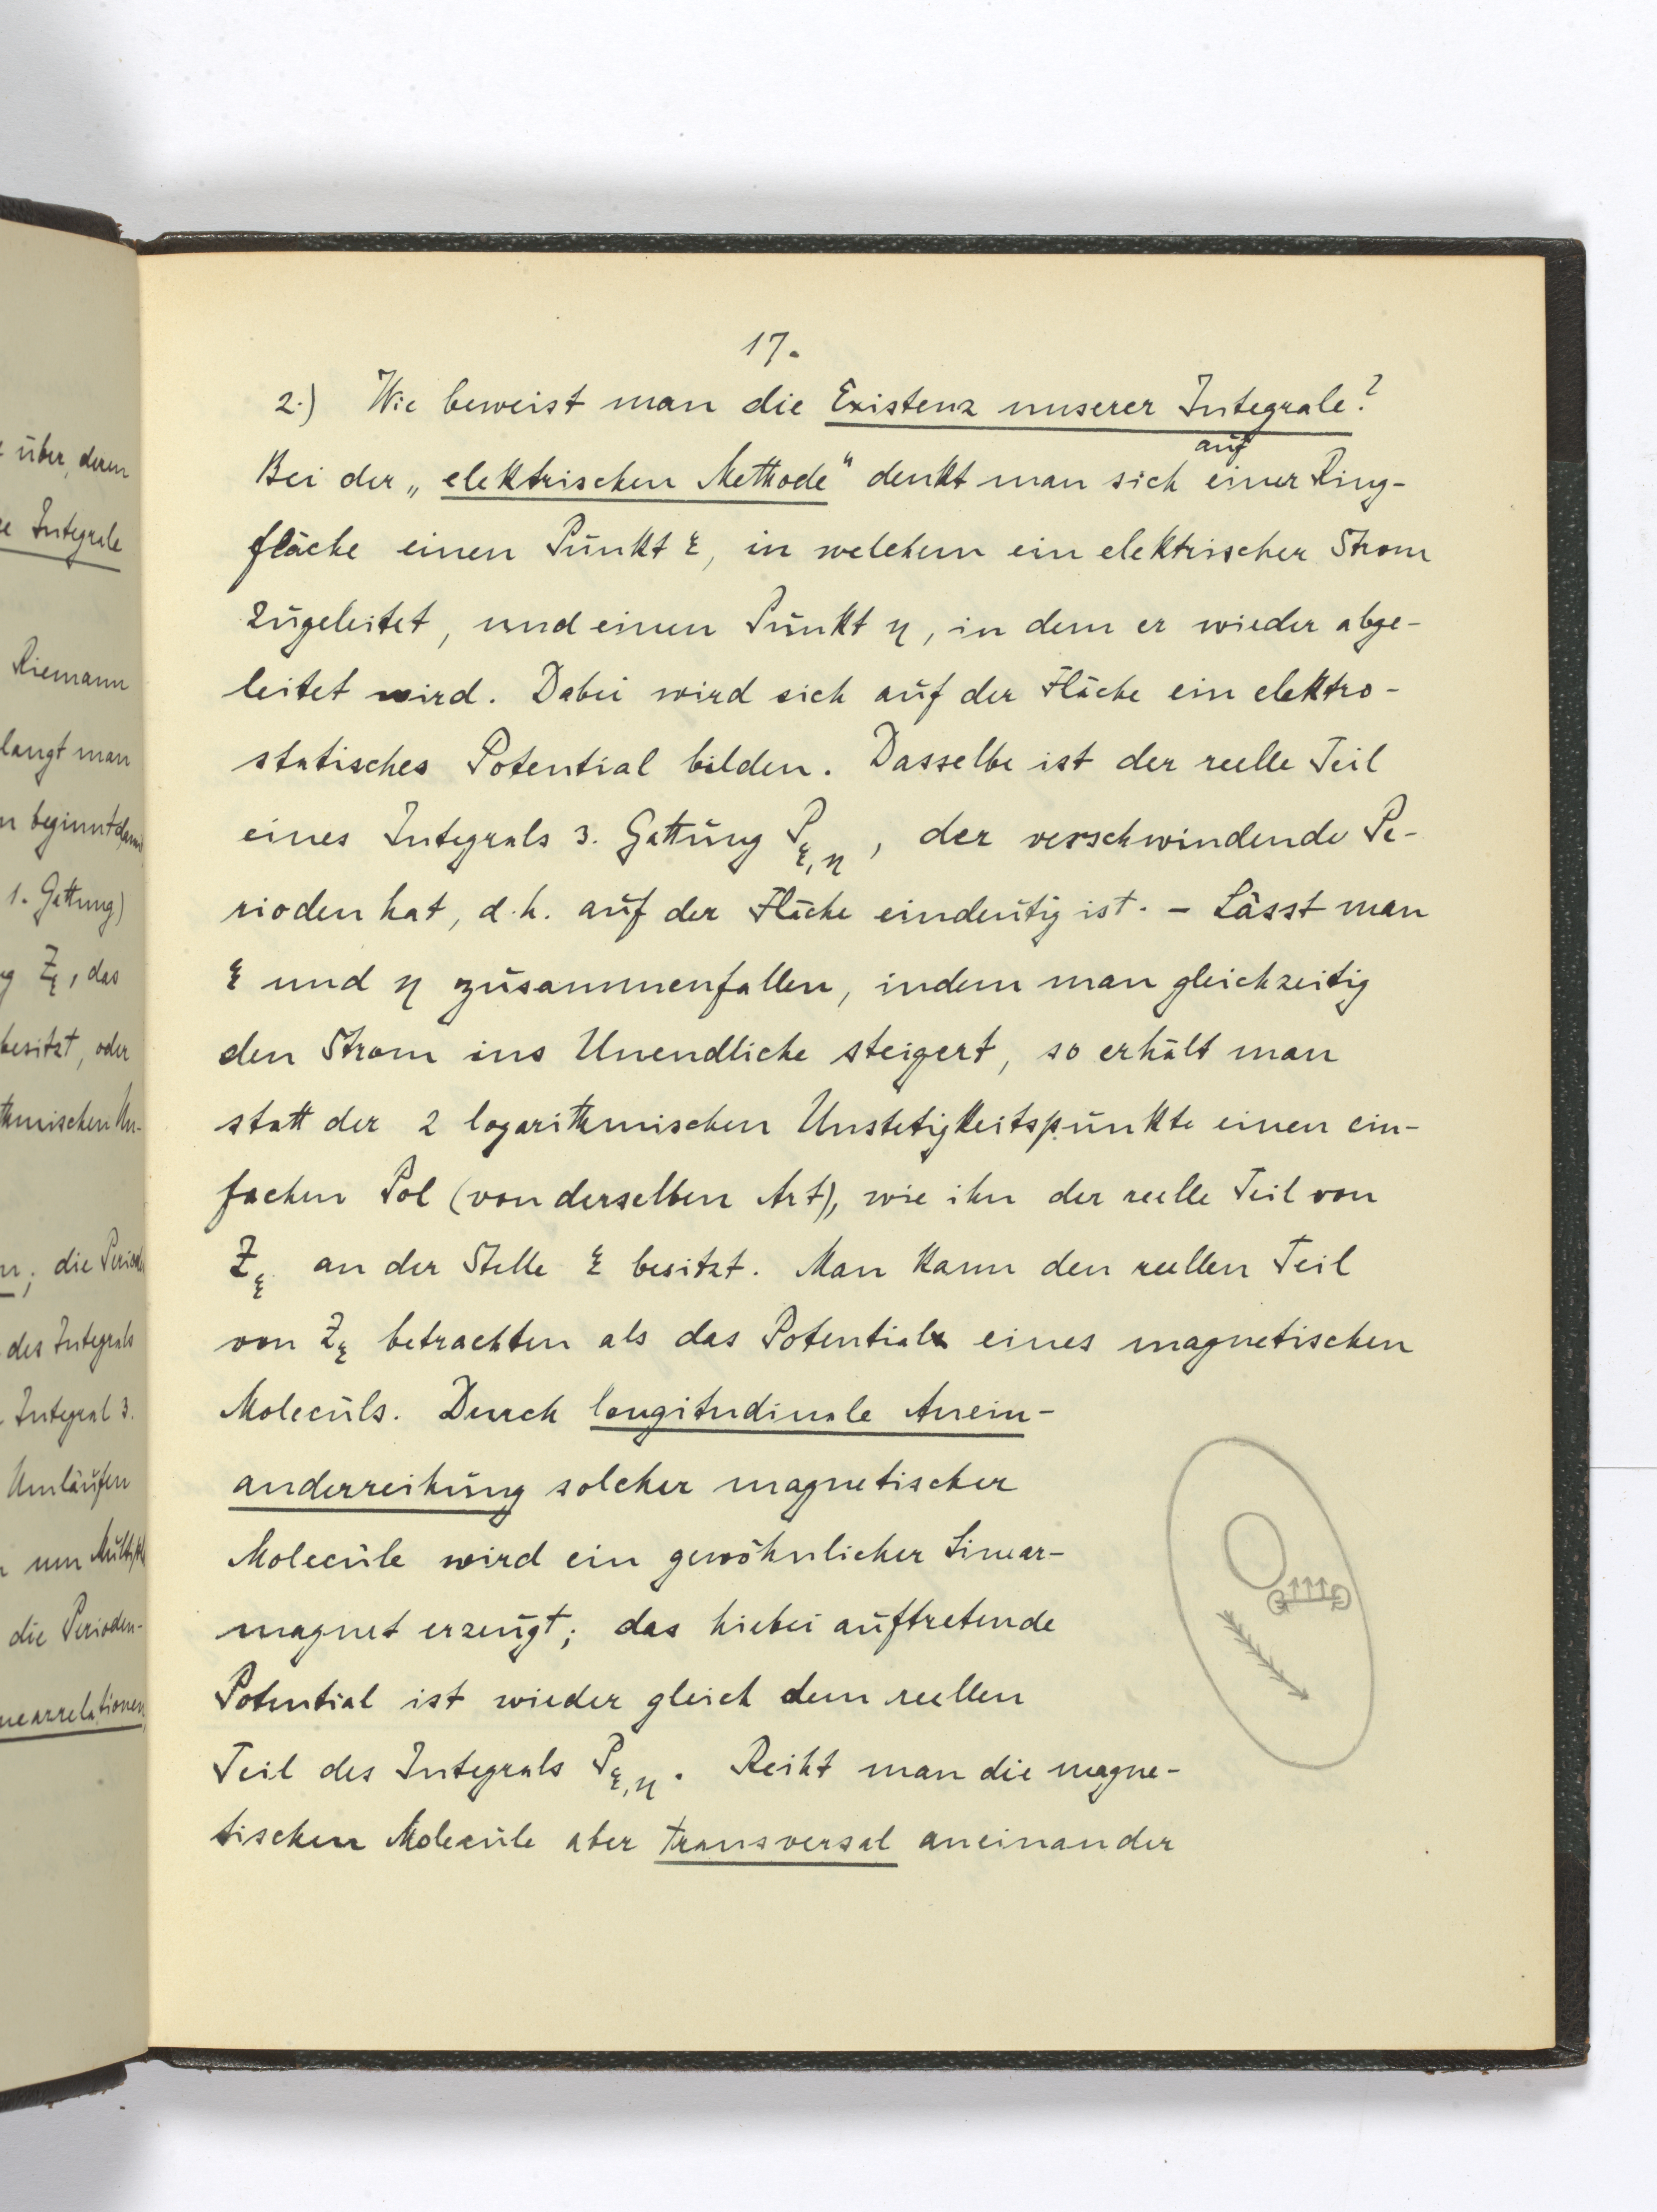 17.
2.) Wie beweist man die Existenz unserer Integrale?
Bei der „elektrischen Methode“ denkt man sich auf einer Ring-
fläche einen Punkt ξ, in welchem ein elektrischer Strom
zugeleitet, und einen Punkt η, in dem er wieder abge-
leitet wird. Dabei wird sich auf der Fläche ein elektro-
statisches Potential bilden. Dasselbe ist der reelle Teil
eines Integrals 3. Gattung P_ξ,η, der verschwindende Pe-
rioden hat, d.h. auf der Fläche eindeutig ist. – Lässt man
ξ und η zusammenfallen, indem man gleichzeitig
den Strom ins Unendliche steigert, so erhält man
statt der 2 logarithmischen Unstetigkeitspunkte einen ein-
fachen Pol (von derselben Art), wie ihn der reelle Teil von
Z_ξ an der Stelle ξ besitzt. Man kann den reellen Teil
von Z_ξ betrachten als das Potential eines magnetischen
Moleculs. Durch longitudinale Anein-
anderreihung solcher magnetischer
Molecüle wird ein gewöhnlicher Linear-
magnet erzeugt; das hiebei auftretende
Potential ist wieder gleich dem reellen
Teil des Integrals P_ξ,η. Reiht man die magne-
tischen Molecüle aber transversal aneinander
über, deren
Integrale
Riemann
langt man
beginnt
1. Gattung)
Z_ξ, das
besitzt, oder
thmischen Un-
die
des Integrals
Integral 3.
Umläufen
um
die Perioden-
nearrelationen